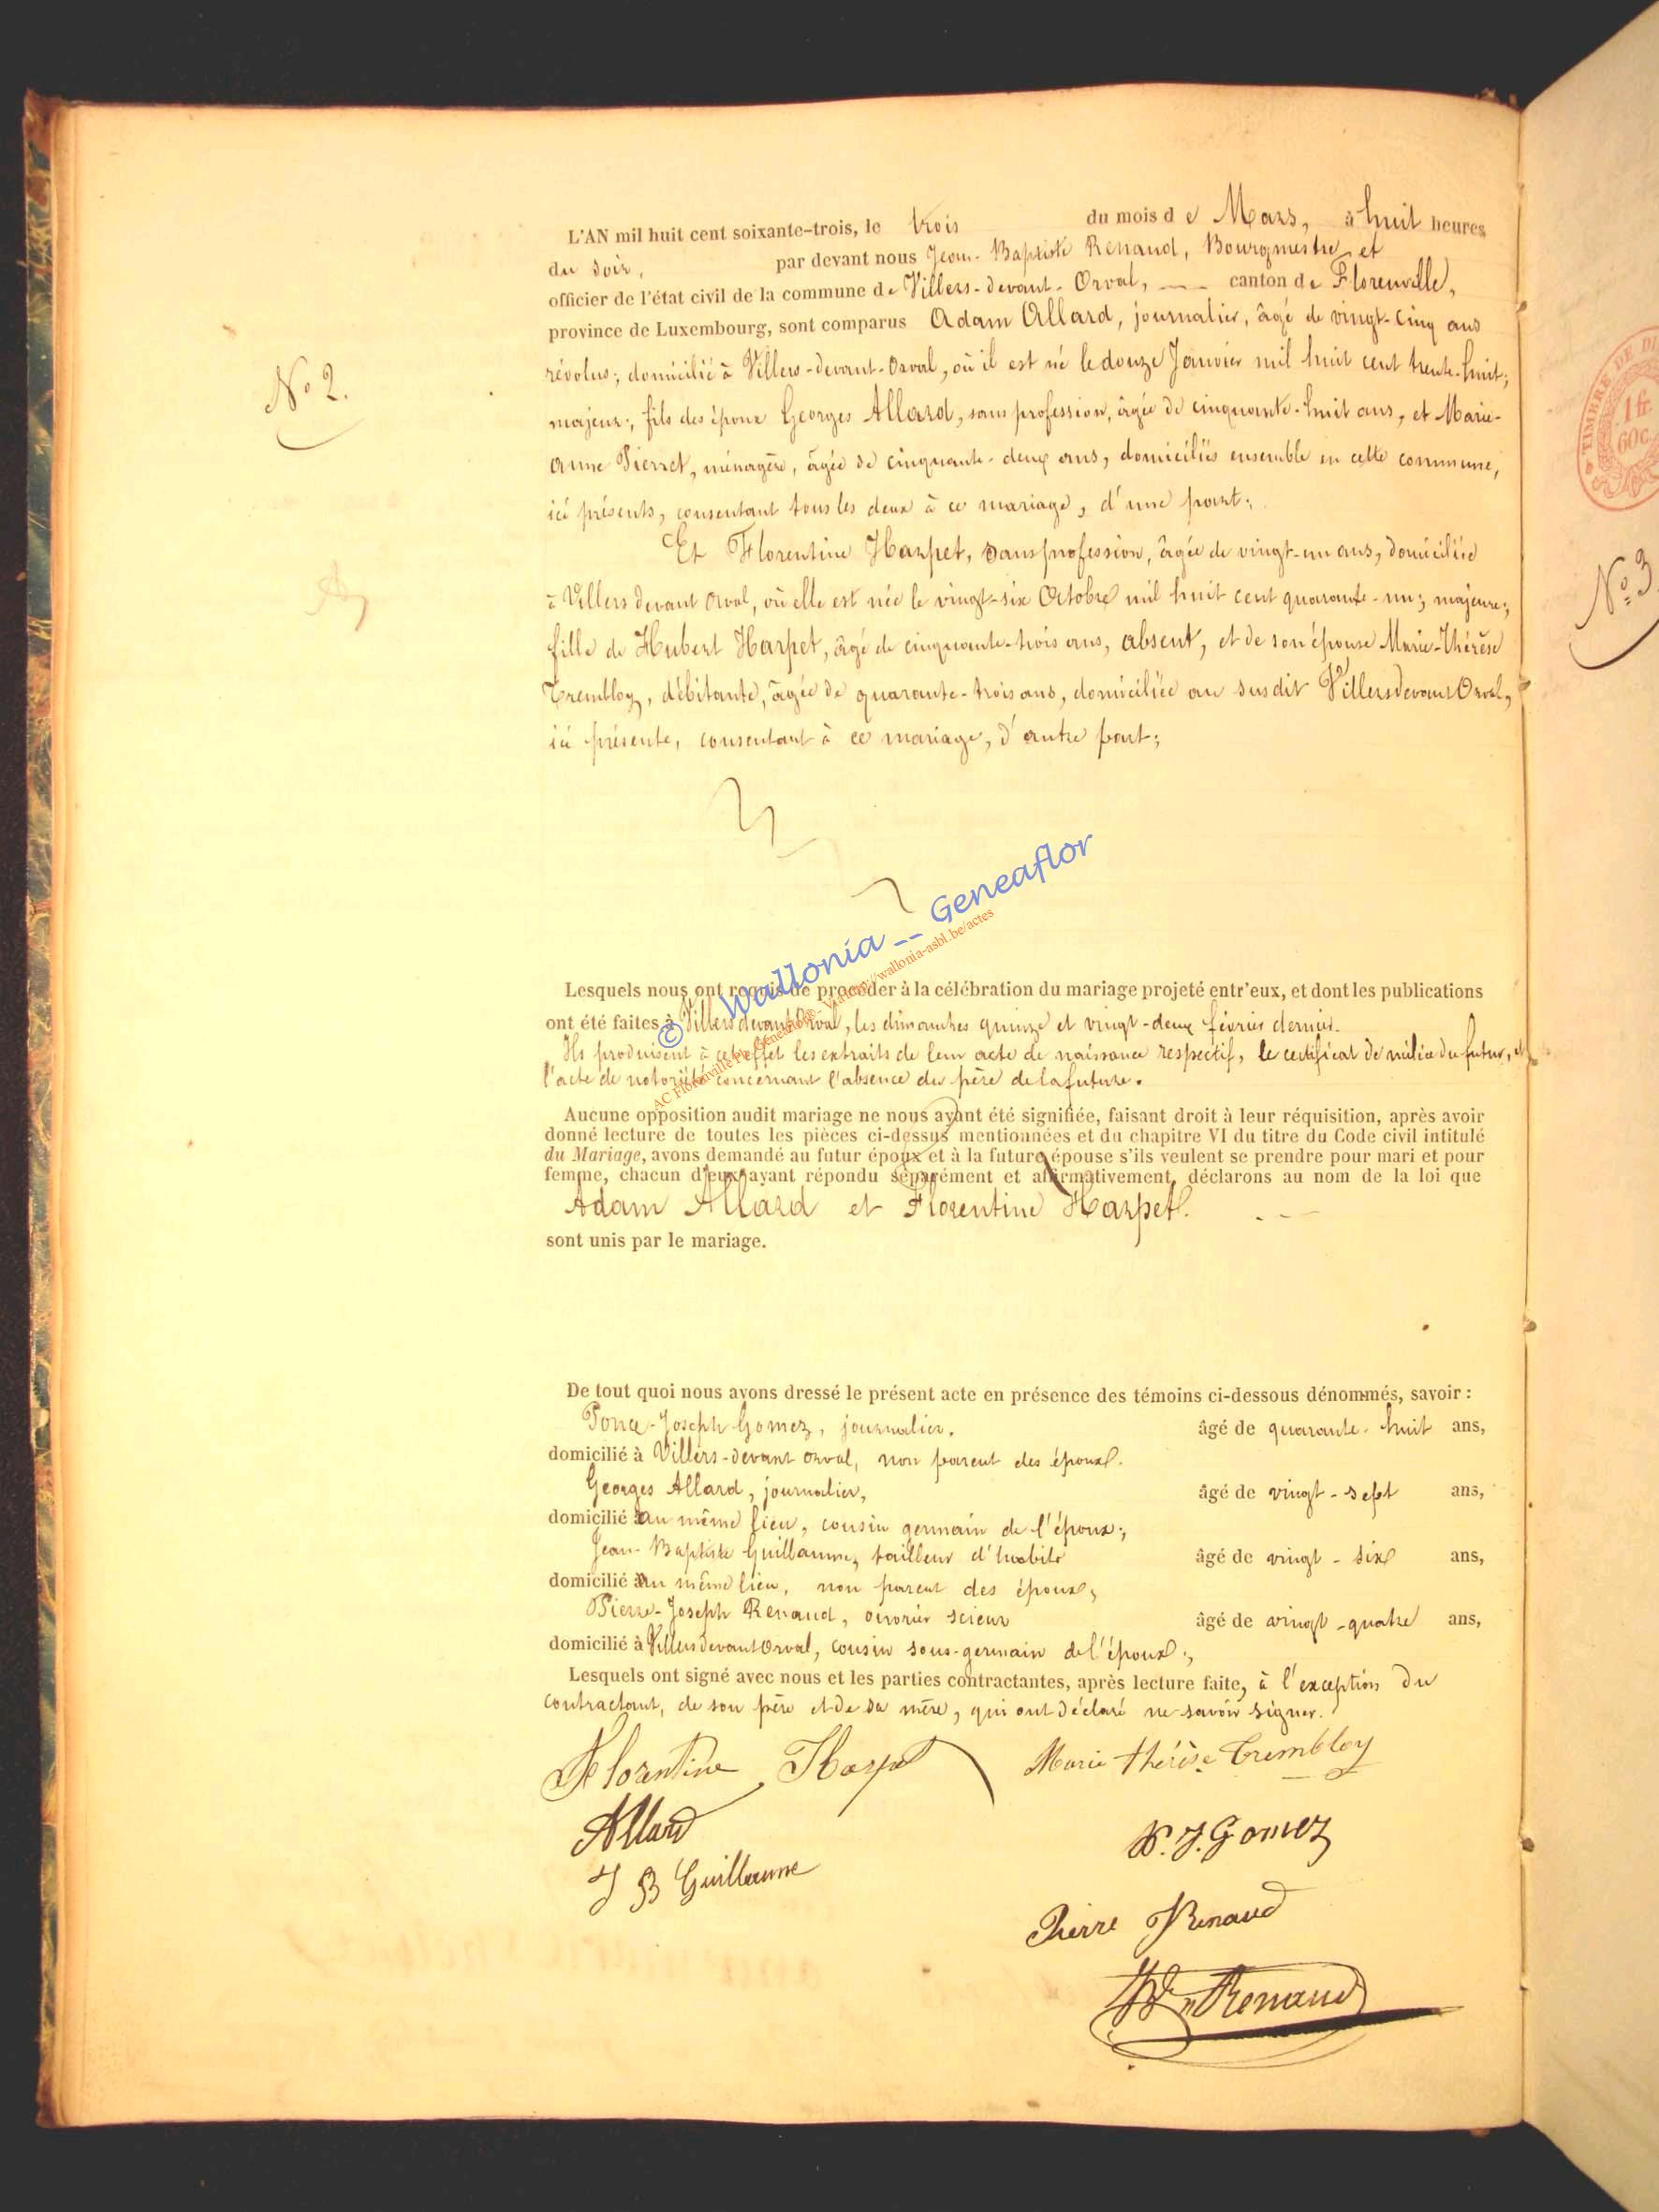 L'AN mil huit cent soixante-trois, le trois du mois de Mars, à huit heures
du soir, par devant nous Jean-Baptiste Renaud, Bourgmestre et
officier de l'état civil de la commune de Villers-devant-Orval, canton de Florenville,
province de Luxembourg, sont comparus Adam Allard, journalier, âgé de vingt-cinq ans
révolus; domicilié à Villers-devant-Orval, où il est né le douze Janvier mil huit cent trente-huit;
N° 2.
majeur; fils des époux Georges Allard, sans profession, âgé de cinquante-huit ans, et Marie-
Anne Pierret, ménagère, âgée de cinquante-deux ans, domiciliés ensemble en cette commune,
ici présents, consentant tous les deux à ce mariage, d'une part;
Et Florentine Harpet, sans profession, âgée de vingt-un ans, domiciliée
à Villers devant Orval, où elle est née le vingt-six Octobre mil huit cent quarante-un; majeure;
fille de Hubert Harpet, âgé de cinquante-trois ans, absent, et de son épouse Marie-Thérèse
Trembloy, débitante, âgée de quarante-trois ans, domiciliée au susdit Villers devant Orval,
ici présente, consentant à ce mariage, d'autre part;
© Wallonia -- Geneaflor
Lesquels nous ont requis de procéder à la célébration du mariage projeté entr'eux, et dont les publications
ont été faites à Villers devant Orval, les dimanches quinze et vingt-deux février dernier.
Ils produisent à cet effet les extraits de leur acte de naissance respectif, le certificat de milice du futur, et
l'acte de notoriété concernant l'absence du père de la future.
Aucune opposition audit mariage ne nous ayant été signifiée, faisant droit à leur réquisition, après avoir
donné lecture de toutes les pièces ci-dessus mentionnées et du chapitre VI du titre du Code civil intitulé
du Mariage, avons demandé au futur époux et à la future épouse s'ils veulent se prendre pour mari et pour
femme, chacun d'eux ayant répondu séparément et affirmativement, déclarons au nom de la loi que
Adam Allard et Florentine Harpet.
sont unis par le mariage.
De tout quoi nous avons dressé le présent acte en présence des témoins ci-dessous dénommés, savoir :
Ponce-Joseph Gomez, journalier, âgé de quarante-huit ans,
domicilié à Villers-devant Orval, non parent des époux.
Georges Allard, journalier, âgé de vingt-sept ans,
domicilié au même lieu, cousin germain de l'époux;
Jean-Baptiste Guillaume, tailleur d'habits âgé de vingt-six ans,
domicilié au même lieu, non parent des époux,
Pierre-Joseph Renaud, ouvrier scieur âgé de vingt-quatre ans,
domicilié à Villers devant Orval, cousin sous-germain de l'époux;
Lesquels ont signé avec nous et les parties contractantes, après lecture faite, à l'exception du
contractant, de son père et de sa mère, qui ont déclaré ne savoir signer.
Florentine Harpet Marie thérèse Trembloy
Allard P. J. Gomez
J B Guillaume
Pierre Renaud
Renaud
TIMBRE DE
1 fr.
60 c.
N° 3